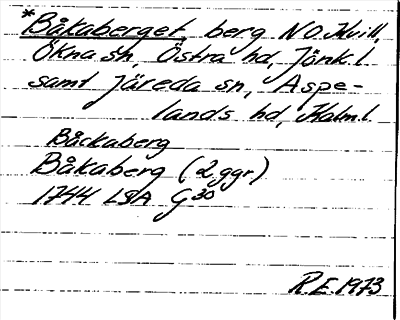 *Båkaberget, berg NO. Kvill,
Ökna sn, Östra hd, Jönk. l
samt Järeda sn, Aspe-
lands hd, Kalm. l
Båckaberg
Båkaberg (2 ggr)
1744 LSA G30
R.E. 1973